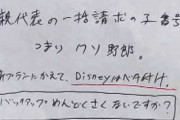 親代表の一括請求の子番号
つまり クソ野郎。
新プランにかえて、Disneyはベタ付け。
バックアップめんどくさくないですか?